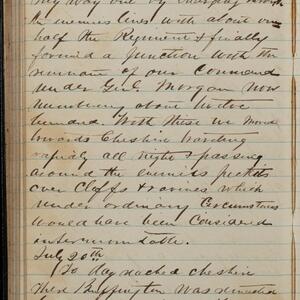 my way out by charging through
the enemies lines with about one
half the Regiment & finally
formed a junction with the
remnant of our Command
under Genl Morgan now
numbering about twelve
hundred. With these we moved
towards Cheshire marching
rapidly all night & passing
around the enemies pickets
over Cliffs & ravines which
under ordinary Circumstances
would have been Considered
insurmountable.
July 20th
To day reached Cheshire
Here Buffington was